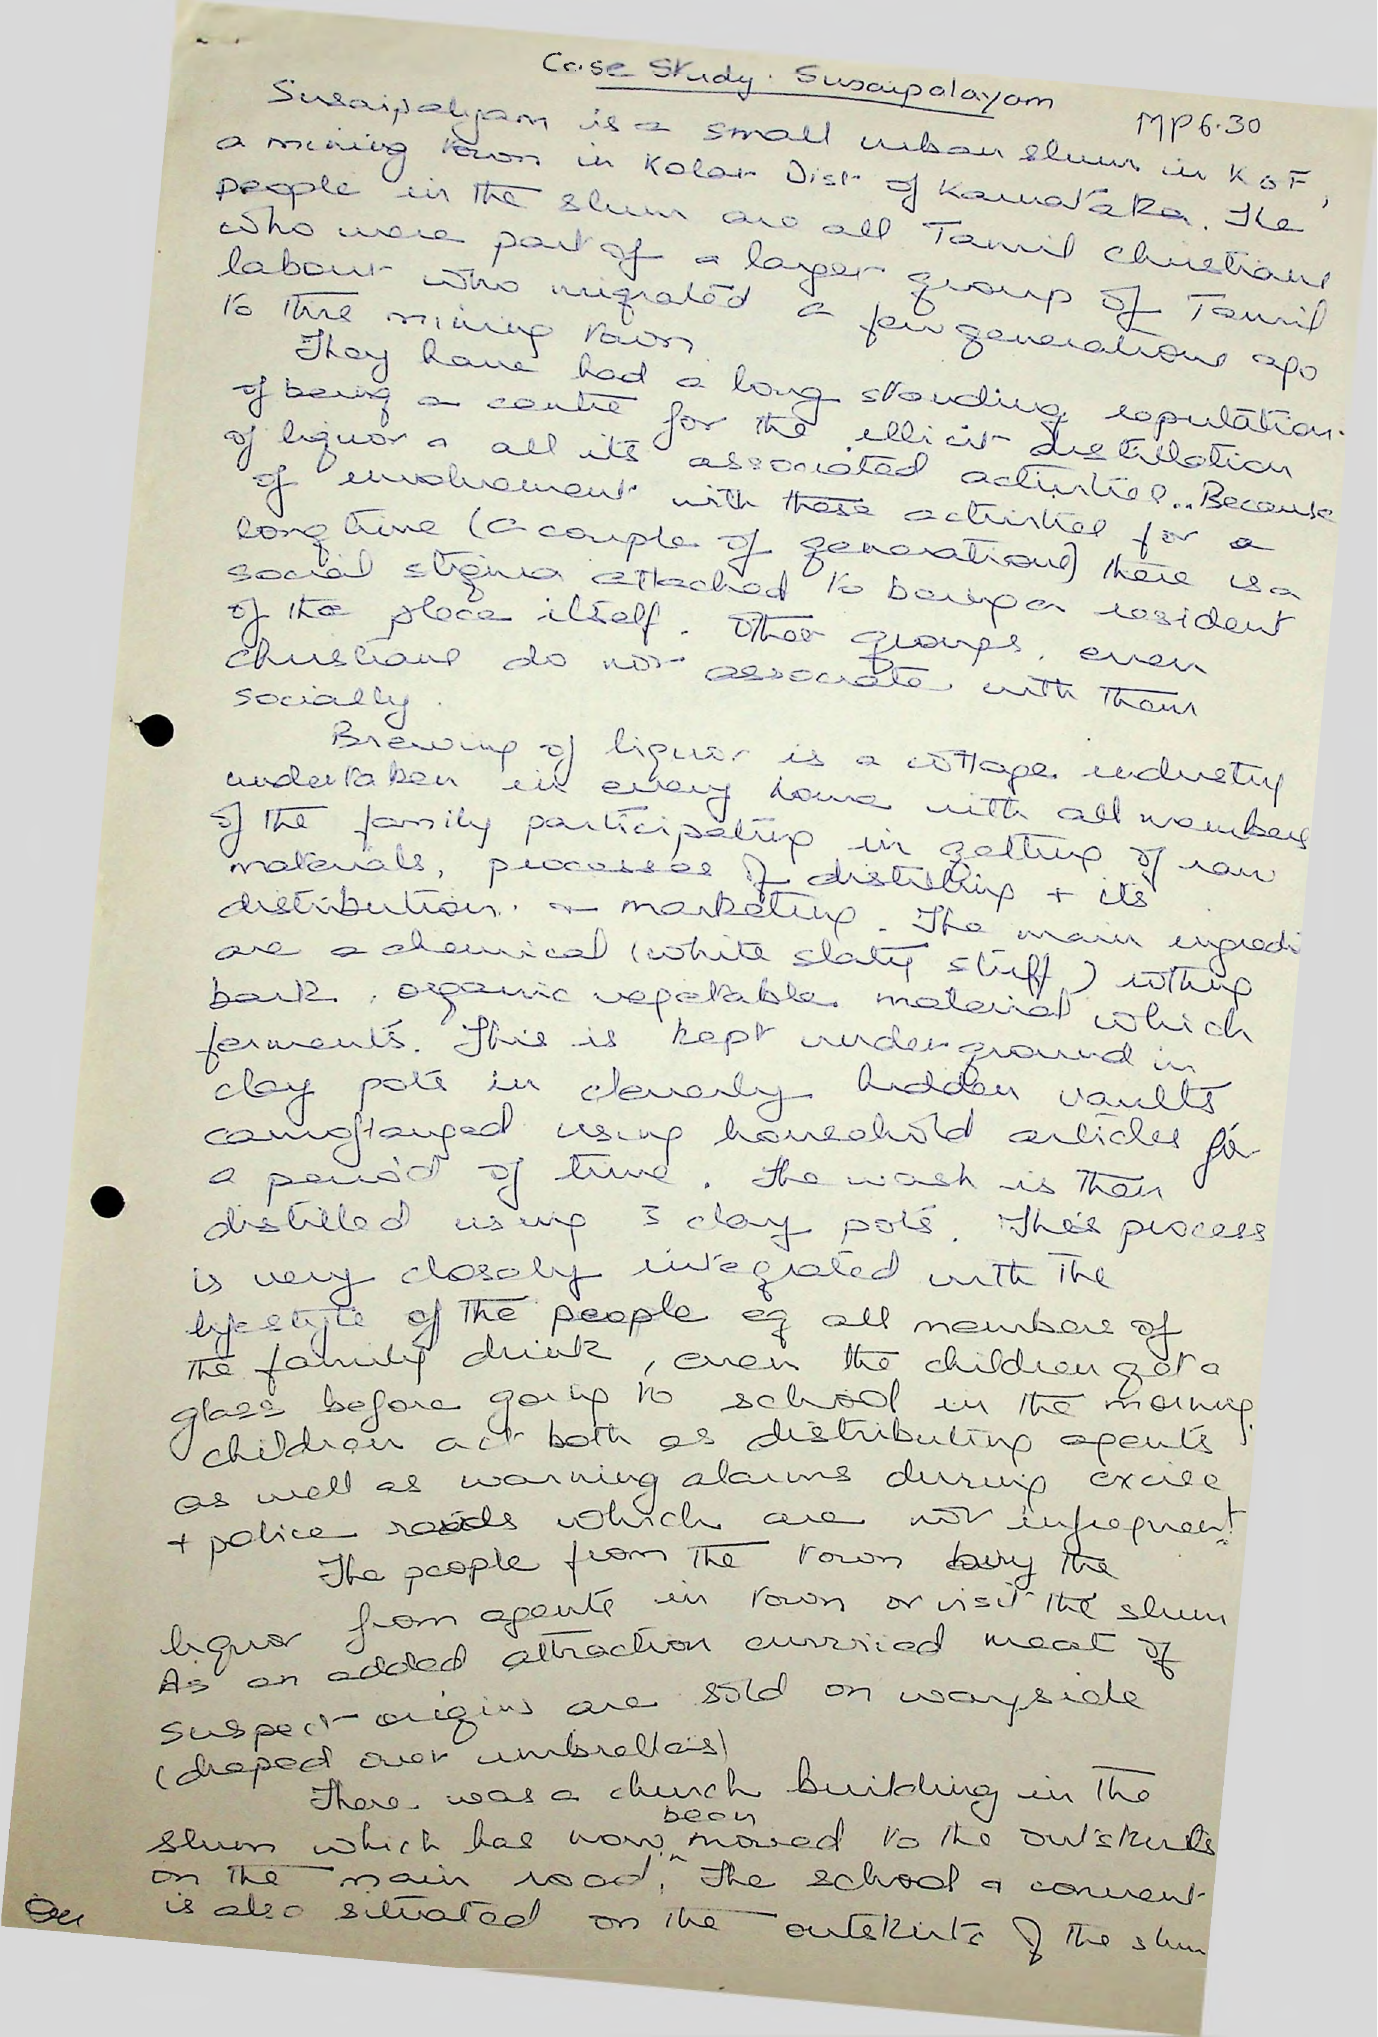 Case Study. Susaipalayam
MP6.30
Susaipalyam is a small urban slum in KGF,
a mining town in Kolar Dist of Karnataka. The
people in the slum are all Tamil Christians
who were part of a larger group of Tamil
labour who migrated a few generations ago
to this mining town.
They have had a long standing reputation
of being a centre for the illicit distillation
of liquor & all its associated activities.. Because
of involvement with these activities for a
long time (a couple of generations) there is a
social stigma attached to being a resident
of the place itself. Other groups, even
Christians do not associate with them
socially.
Brewing of liquor is a cottage industry
undertaken in every home with all members
of the family participating in getting of raw
materials, processes of distilling + its
distribution. & marketing. The main ingredi
are a chemical (white slaty stuff) rotting
bark, organic vegetable material which
ferments. This is kept underground in
clay pots in cleverly hidden vaults
camoflauged using household articles for
a period of time. The wash is then
distilled using 3 clay pots. This process
is very closely integrated with the
lifestyle of the people eg all members of
the family drink, even the children get a
glass before going to school in the morning.
Children act both as distributing agents
as well as warning alarms during excise
+ police raids which are not infrequent.
The people from the town buy the
liquor from agents in town or visit the slum
As an added attraction curried meat of
suspect origins are sold on wayside
(draped over umbrellas)
There was a church building in the
slum which has now been moved to the outskirts
on the main road. The school & convent
is also situated on the outskirts of the slum